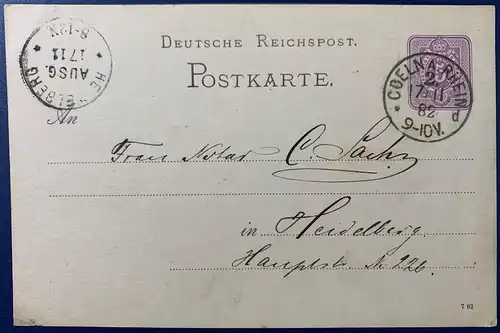 HEIDELBERG
AUSG.
1711
8-12V.
DEUTSCHE REICHSPOST.
POSTKARTE.
COELN A. RHEIN
2
17.11
82
9-10V.
d
An
Frau Notar C. Sachs
in Heidelberg
Hauptstr. № 226.
7 82